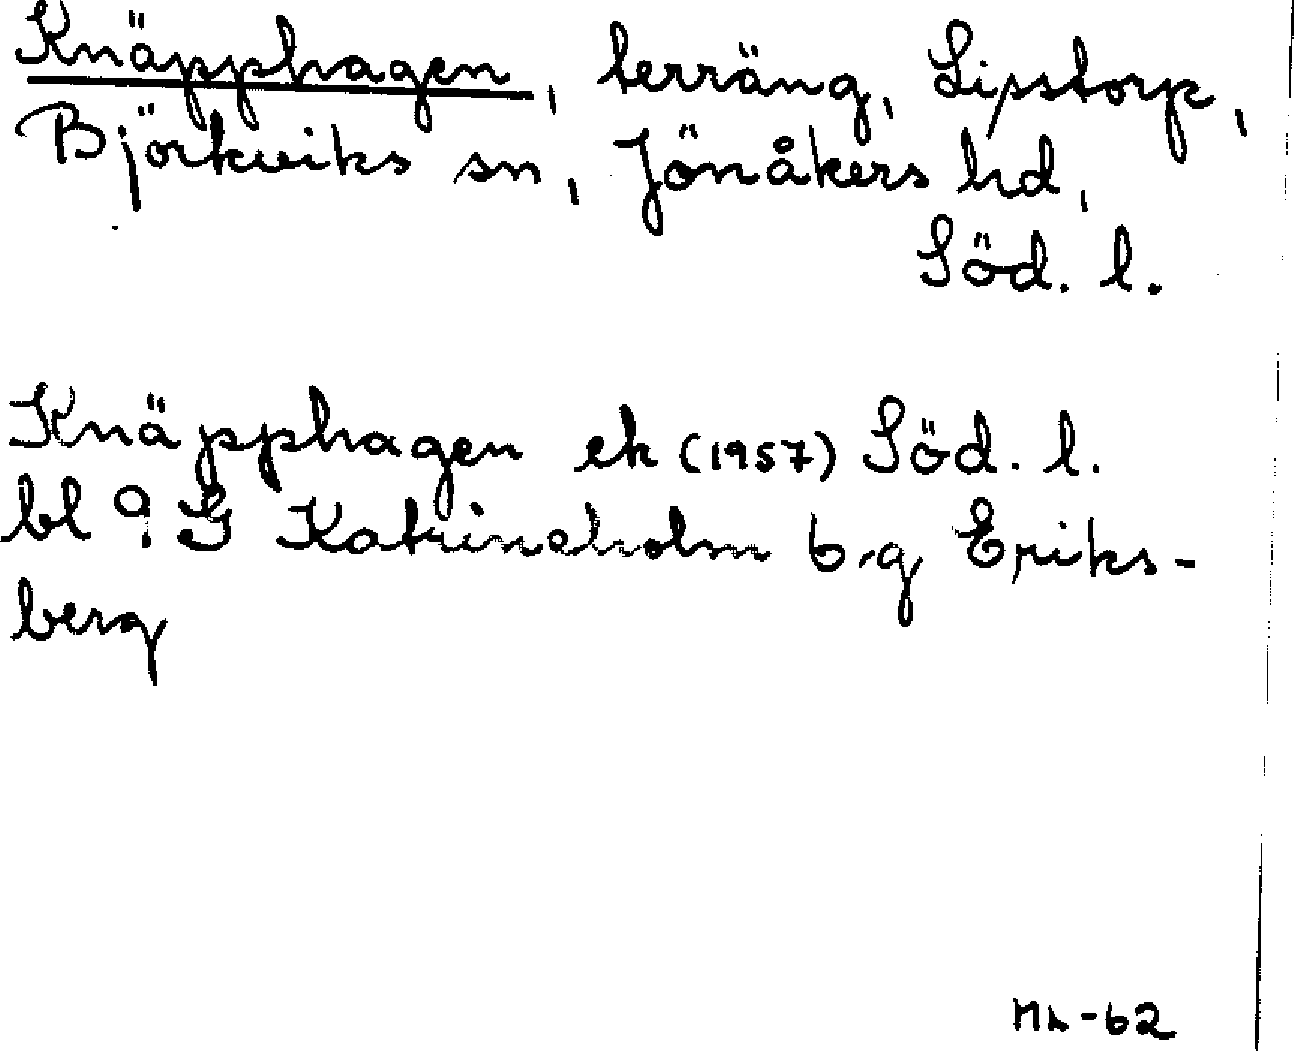 Knäpphagen, terräng, Lisstorp,
Björkviks sn, Jönåkers hd,
Söd. l.
Knäpphagen ek (1957) Söd. l.
bl 9 G Katrineholm 6 g Eriks-
berg
-62